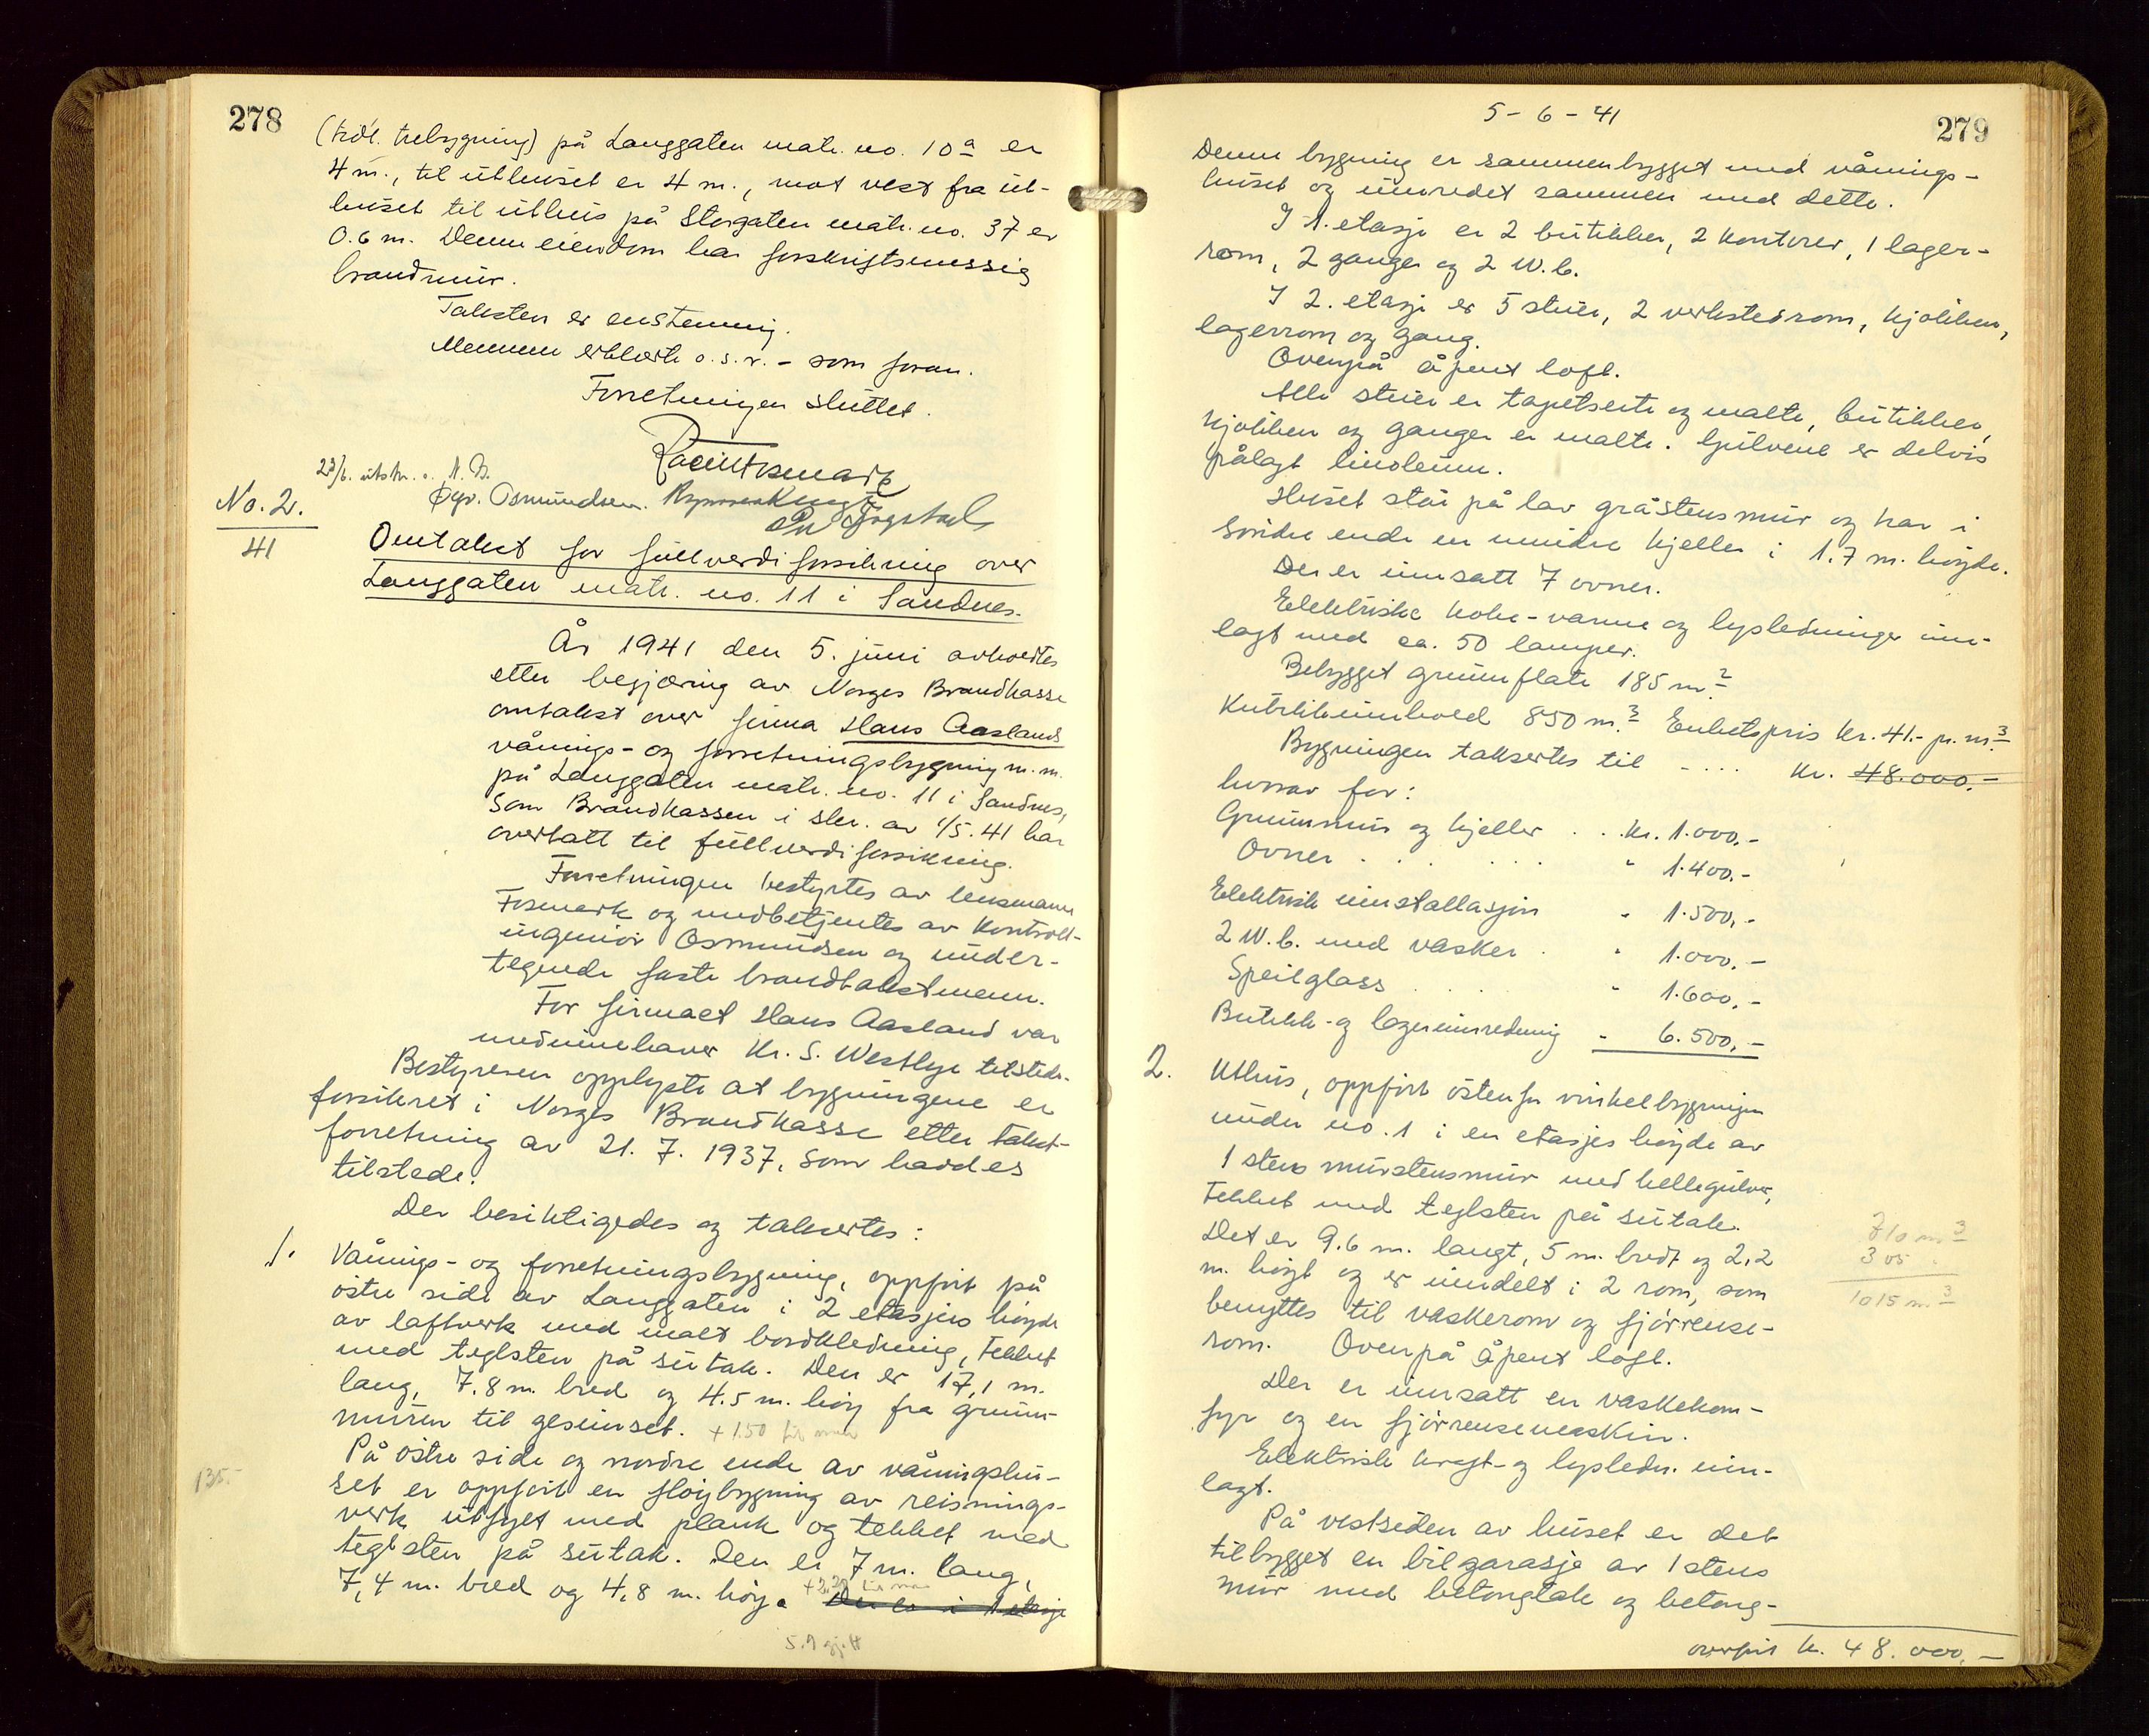 278
(tidl. trebygning) på Langgaten matr. no. 10a er
4 m., til uthuset er 4 m., mot vest fra ut-
huset til uthus på Storgaten matr. no. 37 er
0.6 m. Denne eiendom har forskriftsmessig
brandmur.
Taksten er enstemmig.
Mennene erklærte o.s.v. - som foran.
Forretningen sluttet.
23/6. utskr. s. N. B.
No. 2.
41
Ogv. Osmundsen.
Omtakst for fullverdiforsikring over
Langgaten matr. no. 11 i Sandnes.
År 1941 den 5. juni avholdtes
etter begjæring av Norges Brandkasse
omtakst over firma Hans Aaslands
vånings- og forretningsbygning m.m.
på Langgaten matr. no. 11 i Sandnes,
som Brandkassen i skr. av 1/5.41 har
overtatt til fullverdiforsikring.
Forretningen bestyrtes av lensmann
Fosmark og medbetjentes av kontroll-
ingeniør Osmundsen og under-
tegnede faste brandtakstmenn.
For firmaet Hans Aasland var
medinnehaver Kr. S. Westlye tilstede.
Bestyreren opplyste at bygningene er
forsikret i Norges Brandkasse etter takst-
forretning av 21. 7. 1937, som haddes
tilstede.
Der besiktigedes og takertes:
1. Vånings- og forretningsbygning, oppfört på
östre side av Langgaten i 2 etasjers höyde
av laftverk med malt bordkledning, tekket
med teglsten på sutak. Den er 17,1 m.
lang, 7.8 m. bred og 4.5 m. höy fra grunn-
muren til gesimset. + 1.50 til mur
På östre side og nordre ende av våningshu-
135.-
set er oppfört en flöybygning av reisnings-
verk utfyt med plank og tekket med
teglsten på sutak. Den er 7 m. lang,
7,4 m. bred og 4,8 m. höy. Den er i 1 etasje
5-6-41
279
Denne bygning er sammenbygget med vånings-
huset og innredet sammen med dette.
I 1. etasje er 2 butikker, 2 kontorer, 1 lager-
rom, 2 ganger og 2 W.C.
I 2. etasje er 5 stuer, 2 verkstedrom, kjökken,
lagerrom og gang.
Ovenpå åpent loft.
Alle stuer er tapetserte og malte, butikker,
kjökken og ganger er malte. Gulvene er delvis
pålagt linoleum.
Huset står på lav gråstensmur og har i
söndre ende en mindre kjeller i 1.7 m. höyde.
Der er innsatt 7 ovner.
Elektriske koke-varme og lysledninger inn-
lagt med ca. 50 lamper.
Bebygget grunnflate 185 m.2
Kubikkinnhold 850 m.3 Enhetspris kr. 41.- pr. m.3
Bygningen takertes til .... kr. 48.000.-
hvorav for:
Grunnmur og kjeller . . kr. 1.000,-
Ovner . . . . . . " 1.400.-
Elektrisk innstallasjon " 1.500,-
2 W.C. med vasker . " 1.000.-
Speilglass . . . " 1.600,-
Butikk- og lagerinnredning " 6.500,-
2. Uthus, oppfört östenfor vinkelbygningen
under no. 1 i en etasjes höyde av
1 stens murstensmur med hellegulver,
tekket med teglsten på sutak.
710 m3
Det er 9.6 m. langt, 5 m. bredt og 2.2
305
m. höyt og er inndelt i 2 rom, som
1015 m3
benyttes til vaskerom og fjörrense-
rom. Ovenpå åpent loft.
Der er innsatt en vaskekom-
fyr og en fjörrensemaskin.
Elektrisk kraft- og lysledn. inn-
lagt.
På vestsiden av huset er det
tilbygget en bilgarasje av 1 stens
mur med betongtak og betong-
overfört kr. 48.000,-